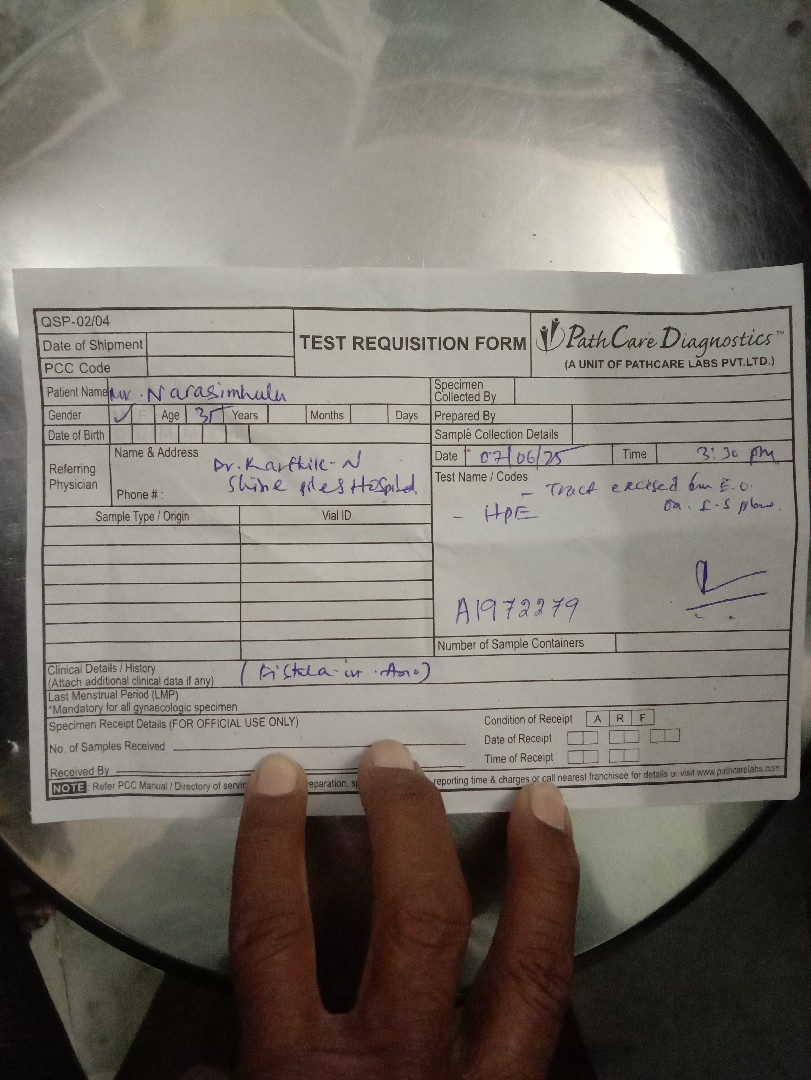 QSP-02/04
Date of Shipment
PCC Code
TEST REQUISITION FORM
PathCare Diagnostics™
(A UNIT OF PATHCARE LABS PVT.LTD.)
Patient Name Mr. Narasimhulu
Gender M F Age 35 Years Months Days
Date of Birth
Referring Physician
Name & Address
Dr. Karthik-N
Shine piles Hospital
Phone # :
Specimen Collected By
Prepared By
Sample Collection Details
Date 07/06/25 Time 3:30 pm
Test Name / Codes
- Tract excised from E.O.
- HPE
A1972279
Sample Type / Origin Vial ID
Number of Sample Containers
Clinical Details / History
(Attach additional clinical data if any)
(Fistula-in-Ano)
Last Menstrual Period (LMP)
*Mandatory for all gynaecologic specimen
Specimen Receipt Details (FOR OFFICIAL USE ONLY)
No. of Samples Received
Received By
Condition of Receipt A R F
Date of Receipt
Time of Receipt
NOTE Refer PCC Manual / Directory of reporting time & charges or call nearest franchisee for details or visit www.pathcarelabs.com